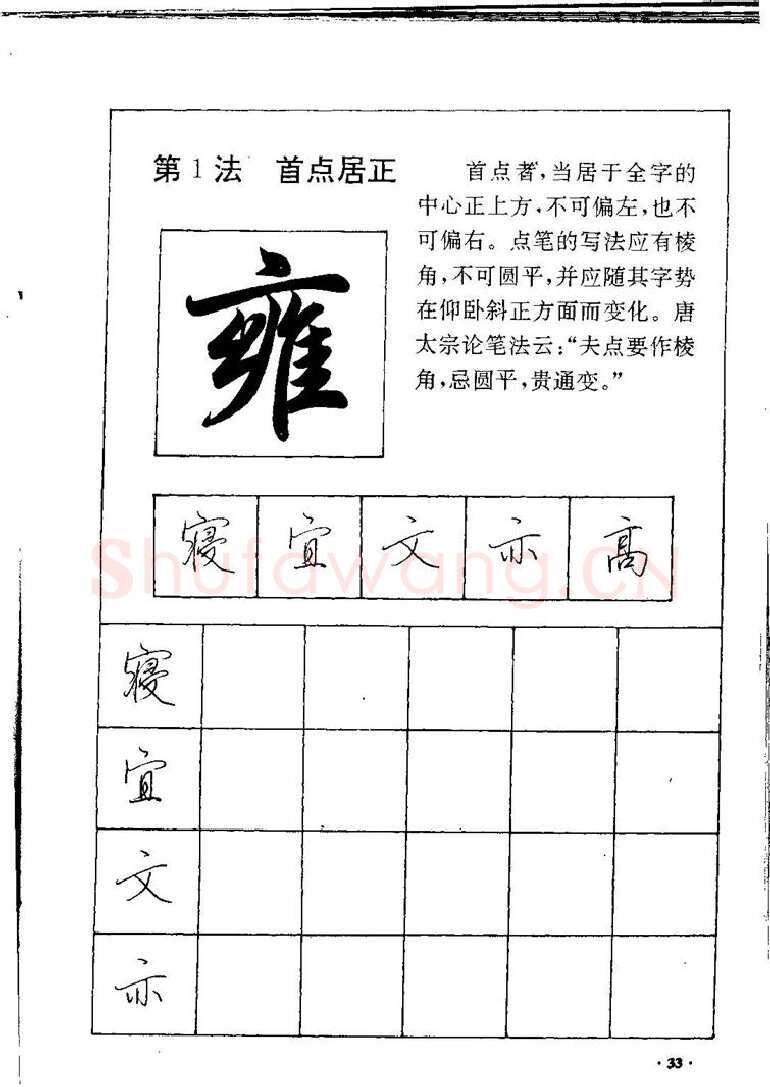 第1法 首点居正
首点者,当居于全字的
中心正上方,不可偏左,也不
可偏右。点笔的写法应有棱
角,不可圆平,并应随其字势
在仰卧斜正方面而变化。唐
太宗论笔法云:“夫点要作棱
角,忌圆平,贵通变。”
雍
寝 宜 文 亦 高
Shufawang.CN
寝
宜
文
亦
·33·